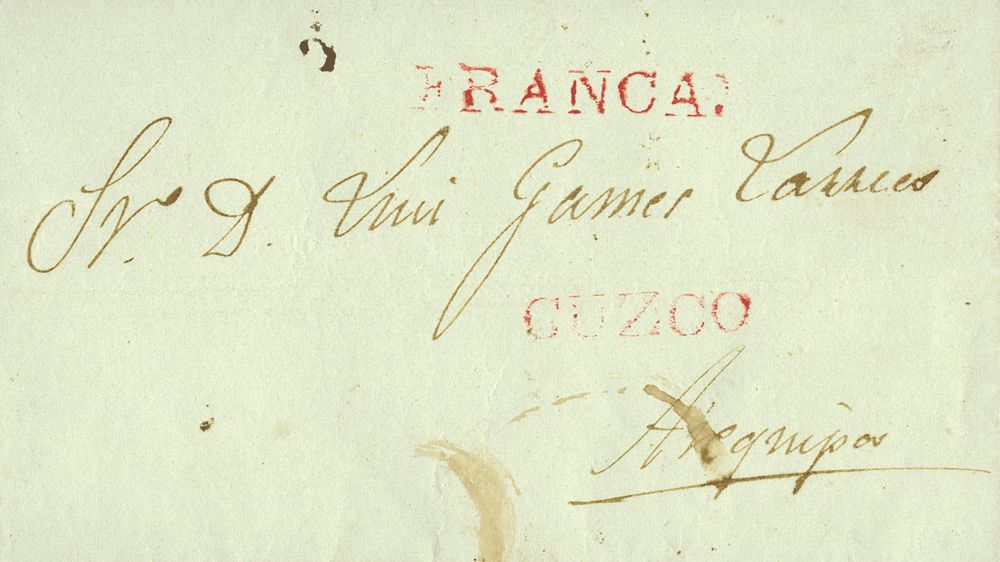 FRANCA.
Sr. D. Luis Gamer
CUZCO
Arequipa